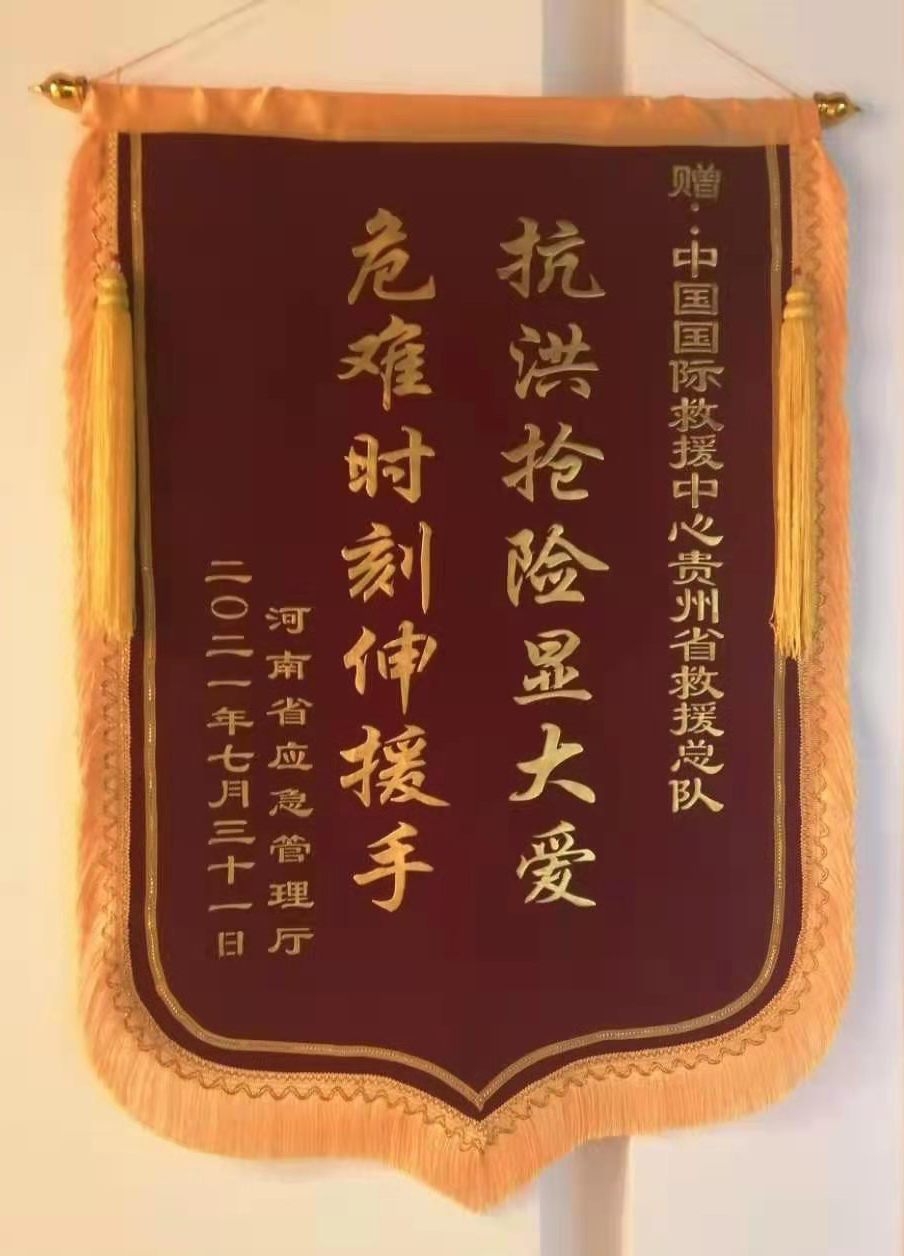 赠：中国国际救援中心贵州省救援总队
抗洪抢险显大爱
危难时刻伸援手
河南省应急管理厅
二〇二一年七月三十一日